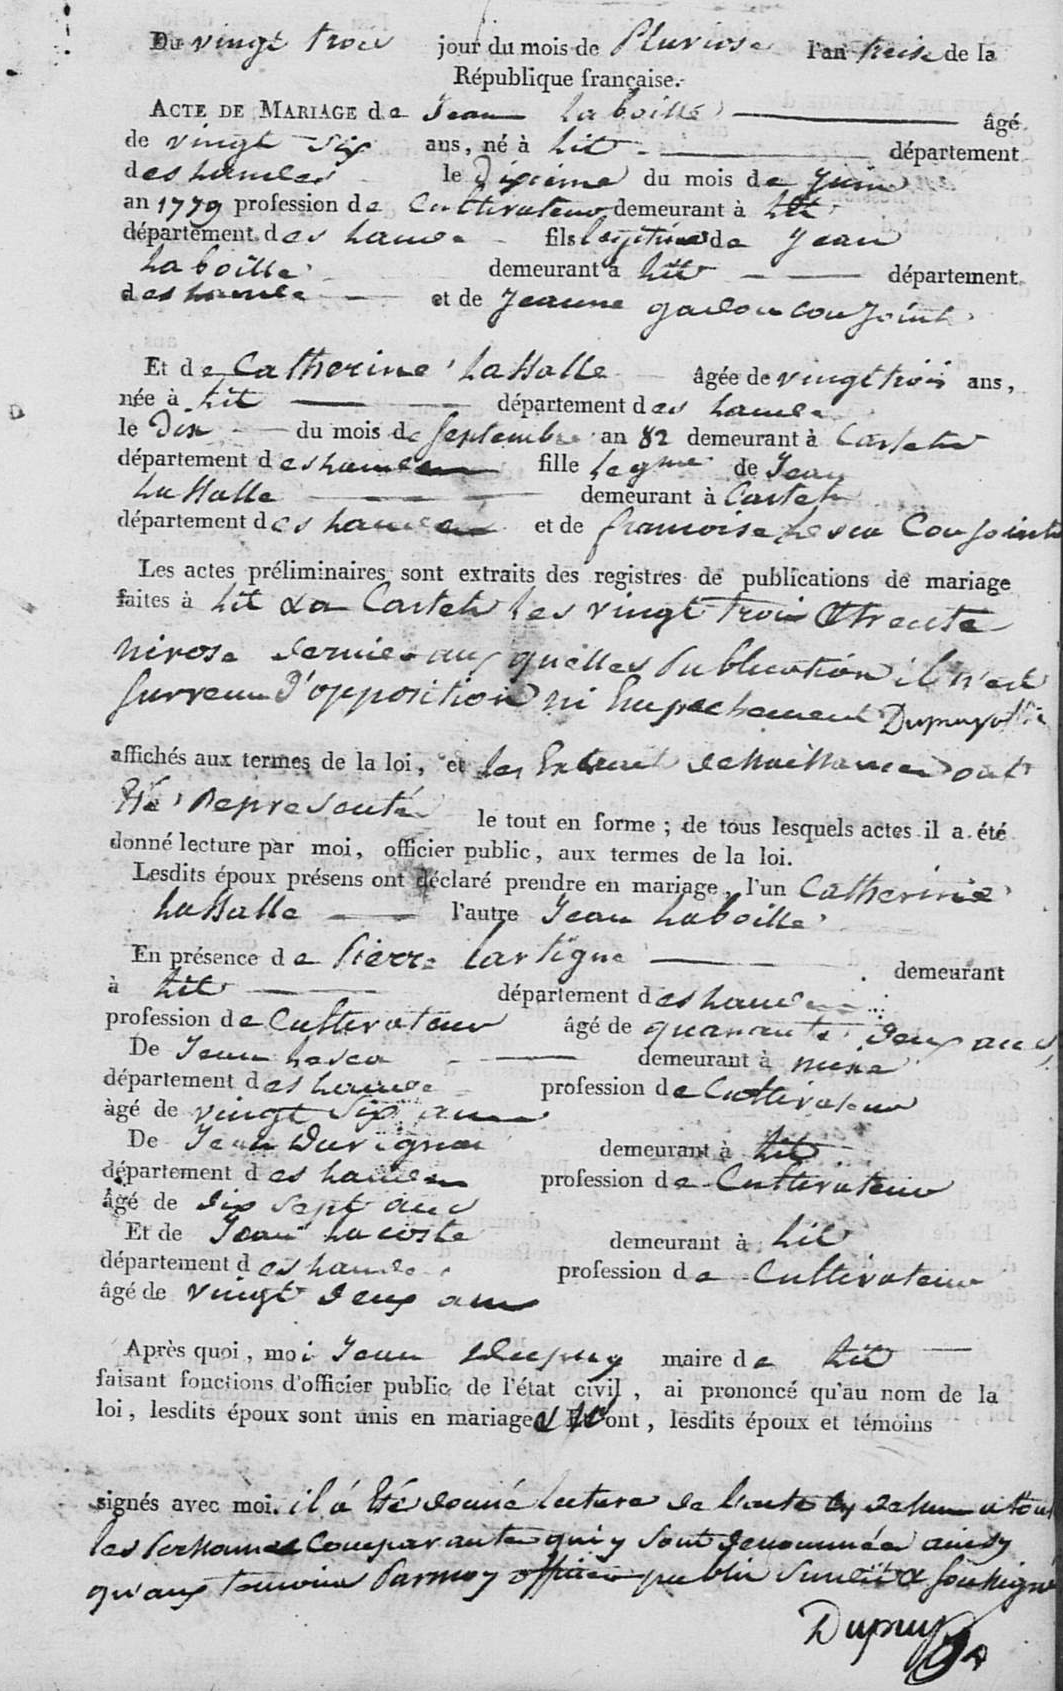 Du vingt trois jour du mois de Pluviose l'an treise de la
République française.
ACTE DE MARIAGE de Jean Laboille âgé
de vingt six ans, né à Lit département
des Landes le dixieme du mois de Juin
an 1779 profession de Cultivateur demeurant à Lit
département des Landes fils legitime de Jean
Laboille demeurant à Lit département
des Landes et de Jeanne conjoints
Et de Catherine Lassalle âgée de vingt trois ans,
née à Lit département des Landes
le Dix du mois de Septembre an 82 demeurant à Castets
département des Landes fille legme de Jean
Lassalle demeurant à Castets
département des Landes et de francoise Lesca Conjoints
Les actes préliminaires sont extraits des registres de publications de mariage
faites à Lit & a Castets les vingt trois & trente
nivose dernier aux quelles Publication il n'est
survenu d'opposition ni Empechement Dupuy
affichés aux termes de la loi, et les Extrait de Naissance ont
Eté Representé le tout en forme; de tous lesquels actes il a été
donné lecture par moi, officier public, aux termes de la loi.
Lesdits époux présens ont déclaré prendre en mariage, l'un Catherine
Lassalle l'autre Jean Laboille
En présence de Pierre Lartigue demeurant
à Lit département des Landes
profession de Cultivateur âgé de quarante deux ans
De Jean Lesca demeurant à mixe
département des Landes profession de Cultivateur
âgé de vingt six ans
De Jean Duvignau demeurant à Lit
département des Landes profession de Cultivateur
âgé de dix sept ans
Et de Jean Lacoste demeurant à Lit
département des Landes profession de Cultivateur
âgé de vingt deux ans
Après quoi, moi Jean Dupuy maire de Lit
faisant fonctions d'officier public de l'état civil, ai prononcé qu'au nom de la
loi, lesdits époux sont unis en mariage Et ont, lesdits époux et témoins
signés avec moi. il a Eté donné lecture de l'acte cy dessus a tous
les Personnes Comparantes qui y sont denommées ainsy
qu'aux temoins Parmoy officier public susdit & soussigné
Dupuy